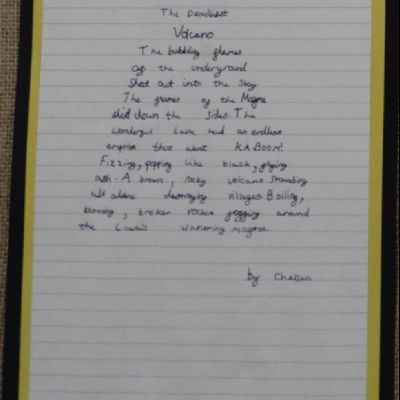 The Deadliest
Volcano
The bubbling flames
of the underground
Shot out into the sky
The flames of the Magma
slid down the sides. The
wonderful Lava had an endless
eruption that went KABOOM!
Fizzing, popping like black, flying
ash. A brown, rocky volcano standing
all alone destroying villages Boiling,
burning, broken rocks jogging around
the magma
by Chelsea